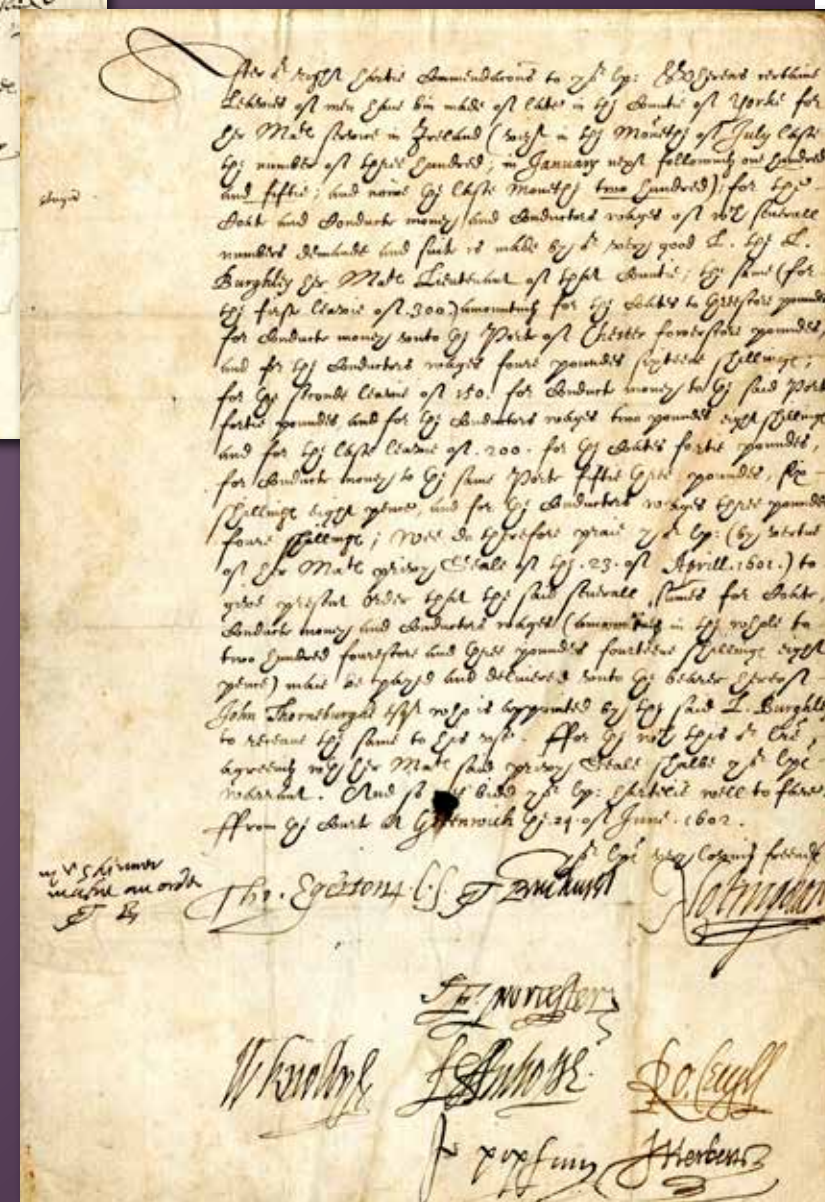 After or right hartie Commendacons to yor lp: Whereas certaine
Leavies of men have bin made of late in the Countie of Yorke for
her Mats service in Ireland (vizt in the Moneth of July laste
the number of three hundred; in January next following one hundred
and fiftie; and nowe the laste Moneth two hundred); for the
Coate and Conducte money and Conductors wages of wch severall
numbers demande and suite is made by or very good L. the L.
Burghley her Mats Lieutenant of that Countie; the same (for
the first leavie of .300.) amounting for the Coates to threscore poundes
for Conducte money unto the Porte of Chester fowerscore poundes,
and for the Conductors wages foure poundes sixteene shillings;
for the seconde leavie of 150. for Conduct money to the said Port
fortie poundes and for the Conductors wages two poundes eight shillings
and for the laste leavie of .200. for the Coates fortie poundes,
for Conducte money to the same Porte fiftie three poundes, six
shillings eight pence, and for the Conductors wages three poundes
foure shillings; Wee do therefore praie yor lp: (by vertue
of her Mats privy Seale of the .23. of Aprill .1601.) to
give present order that the said severall sumes for Coate,
Conducte money and Conductors wages (amounting in the whole to
two hundred fourescore and three poundes fourteene shillings eight
pence) maie be payed and delivered unto the bearer hereof
John Thorneburghe who is appointed by the said L. Burghley
to receave the same to his use. ffor the wch this or lre,
agreeing wth her Mats said privy Seale shalbe yor lps
warrant. And so bidd yor lp: hartelie well to fare.
ffrom the Court at Greenwich the .29. of June .1602.
yor lps very loving freends
mr Skinner
make an order
T B
Tho. Egerton C.S. T Buckhurst Notingham
E. Worcester
W Knollys J Stanhope Ro. Cecyll
Jo popham J Herbert